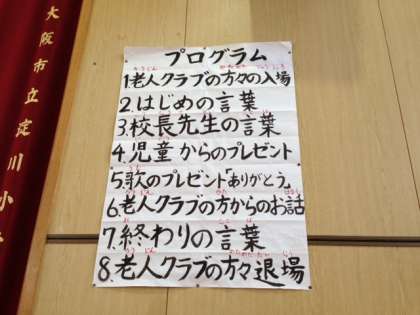 大阪市立淀川小
プログラム
1.老人クラブの方々の入場
2.はじめの言葉
3.校長先生の言葉
4.児童からのプレゼント
5.歌のプレゼント「ありがとう」
6.老人クラブの方からのお話
7.終わりの言葉
8.老人クラブの方々退場